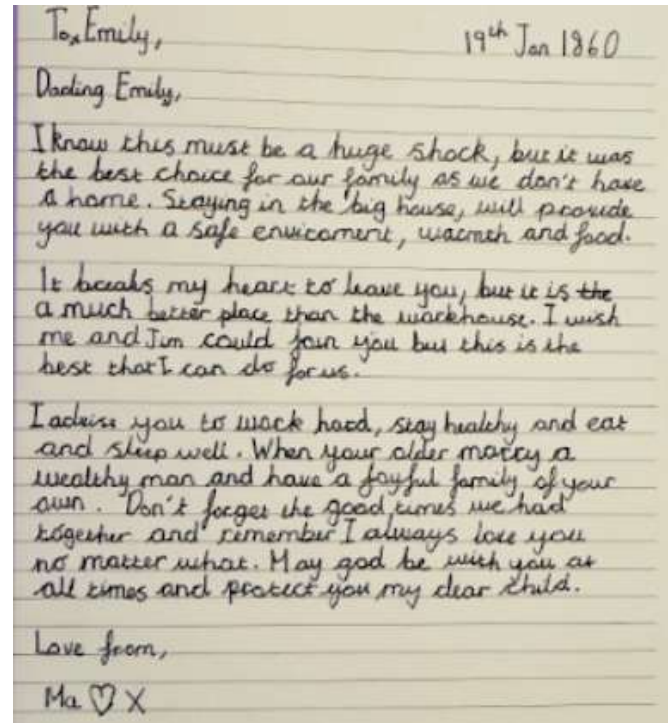 To, Emily,
19th Jan 1860
Darling Emily,
I know this must be a huge shock, but it was
the best choice for our family as we don't have
a home. Staying in the big house, will provide
you with a safe enviroment, warmth and food.
It breaks my heart to leave you, but it is the
a much better place than the workhouse. I wish
me and Jim could join you but this is the
best that I can do for us.
I advise you to work hard, stay healthy and eat
and sleep well. When your older marry a
wealthy man and have a joyful family of your
own. Don't forget the good times we had
together and remember I always love you
no matter what. May god be with you at
all times and protect you my dear child.
Love from,
Ma ♡ X